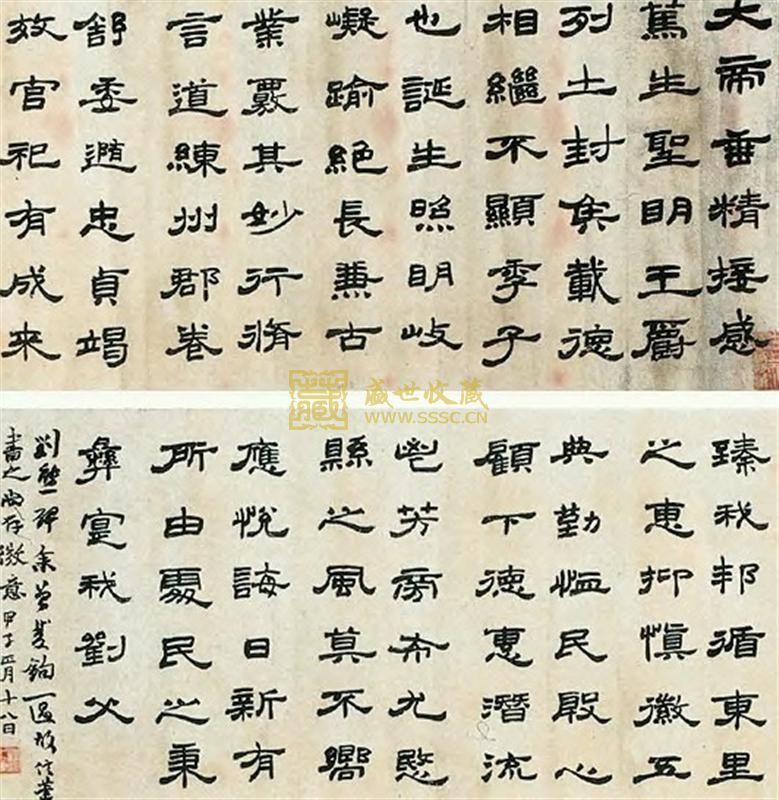 大帝垂精接感
篤生聖明王爵
列土封矦載德
相繼不顯季子
也誕生照明岐
嶷踰絕長兼古
業覈其妙行脩
言道練州郡卷
舒委遁忠貞竭
效官祀有成来
藏
盛世收藏
WWW.SSSC.CN
臻我邦循東里
之惠抑慎徽五
典勤恤民殷心
顧下德惠潛流
邕芳旁布尤愍
縣之風莫不嚮
應悅誨日新有
所由處民之秉
彝寔我劉父
劉熊碑余曾雙鉤一過
書之尚存微意甲子正月十八日